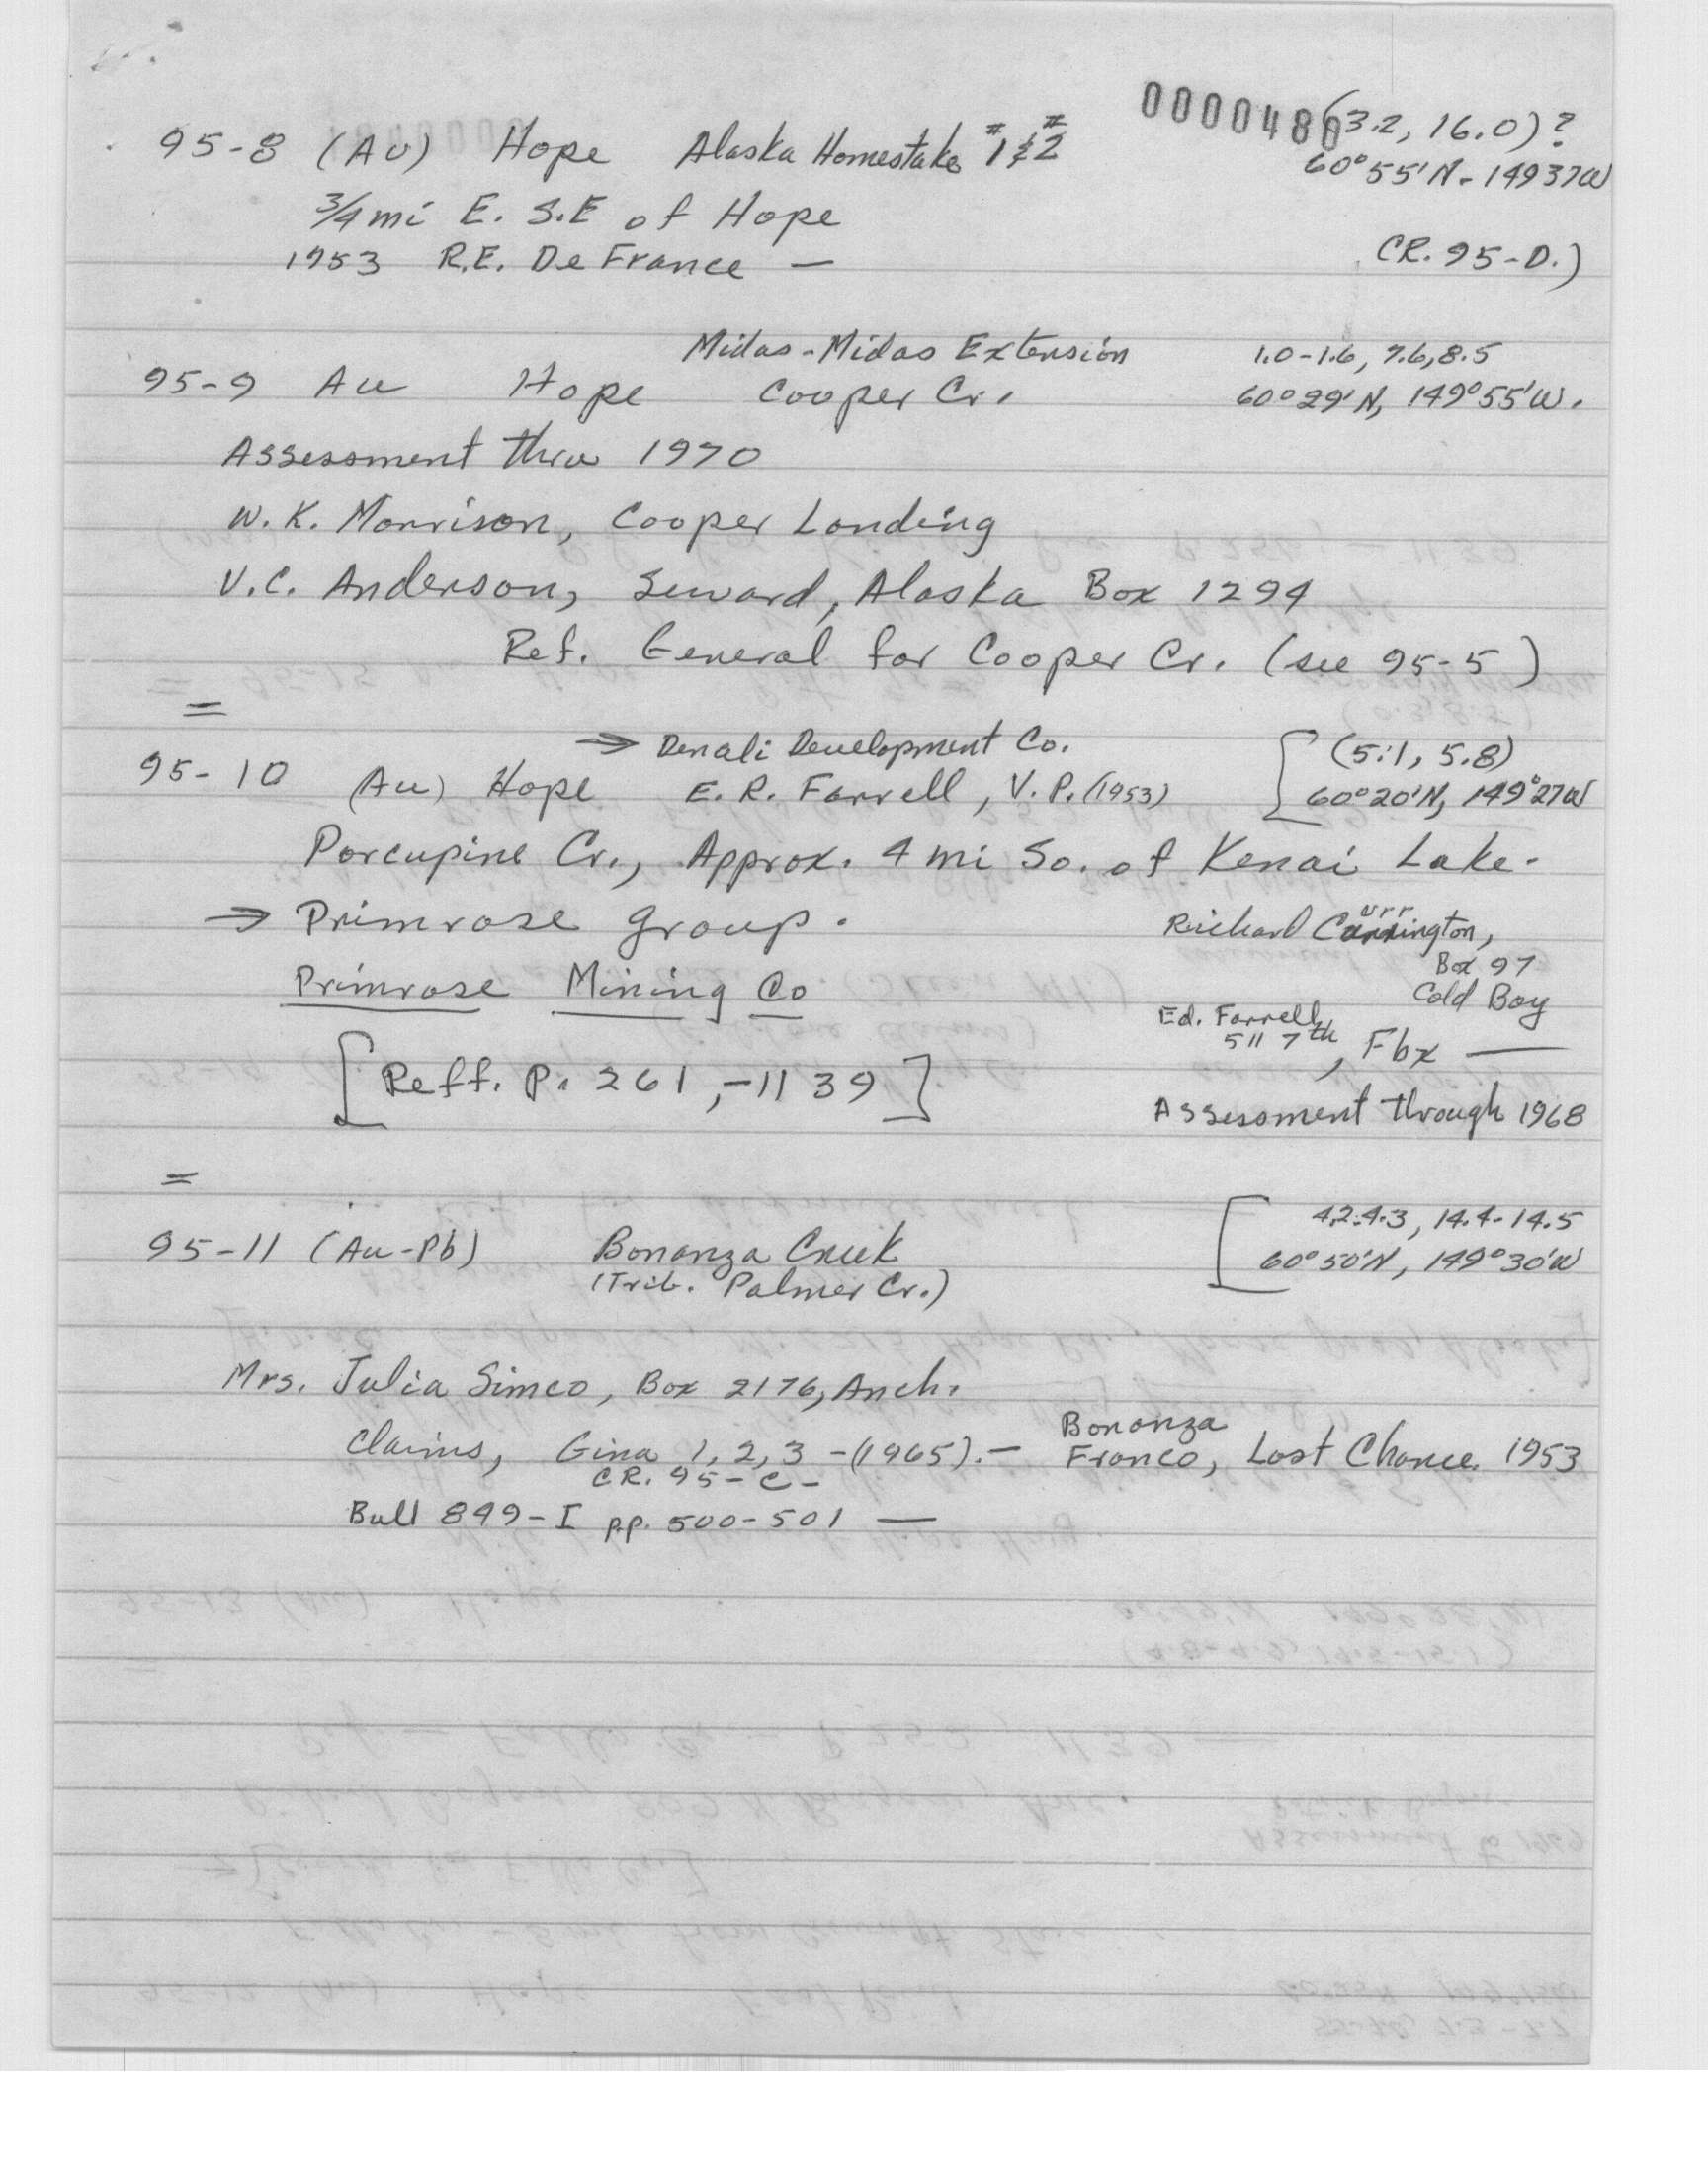 0000486 (3.2, 16.0)?
95-8 (Au) Hope Alaska Homestake #1 & #2
60°55'N - 149 37W
3/4 mi E. S.E of Hope
1953 R.E. De France —
CR. 95-D.)
Midas - Midas Extension 1.0-1.6, 7.6, 8.5
95-9 Au Hope Cooper Cr. 60°29'N, 149°55'W.
Assessment thru 1970
W. K. Morrison, Cooper Landing
V.C. Anderson, Seward, Alaska Box 1294
Ref. General for Cooper Cr. (see 95-5)
=
→ Denali Development Co. [(5.1, 5.8)
95-10 (Au) Hope E. R. Farrell, V.P. (1953) 60°20'N, 149°27W
Porcupine Cr., Approx. 4 mi So. of Kenai Lake.
→ Primrose group. Richard Currington,
Box 97
Primrose Mining Co Cold Bay
Ed. Farrell,
511 7th, Fbx —
[Reff. P. 261, -1139]
Assessment through 1968
=
[4.2-4.3, 14.4-14.5
95-11 (Au-Pb) Bonanza Creek 60°50'N, 149°30'W
(Trib. Palmer Cr.)
Mrs. Julia Simco, Box 2176, Anch.
Bonanza
Claims, Gina 1, 2, 3 -(1965). — Franco, Last Chance 1953
CR. 95-C-
Bull 849-I pp. 500-501 —